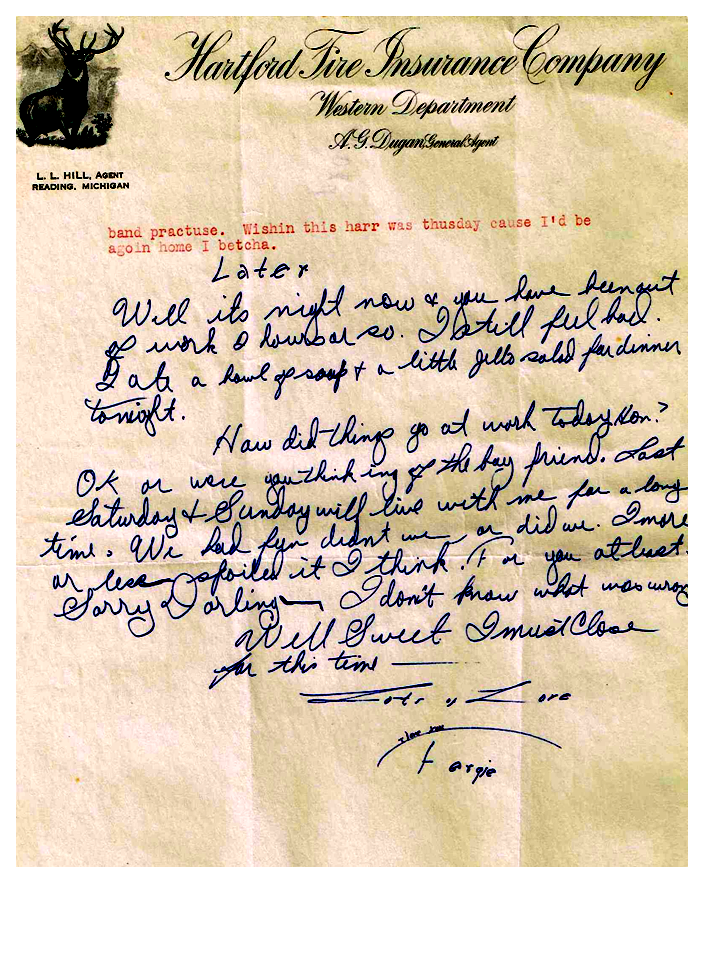 Hartford Fire Insurance Company
Western Department
A.G. Dugan, General Agent
L. L. HILL, AGENT
READING, MICHIGAN
band practuse. Wishin this harr was thusday cause I'd be
agoin home I betcha.
Later
Well its night now & you have been out
of work 8 hours or so. I still feel bad.
I ate a bowl of soup & a little jello salad for dinner
tonight.
How did things go at work today, Hon?
OK or were you thinking of the boy friend. Last
Saturday & Sunday will live with me for a long
time. We had fun didnt we — or did we. I more
or less spoiled it I think. For you at least.
Sorry Darling — I don't know what was wrong
Well Sweet I must Close
for this time —
Lots of Love
I love you
Fergie